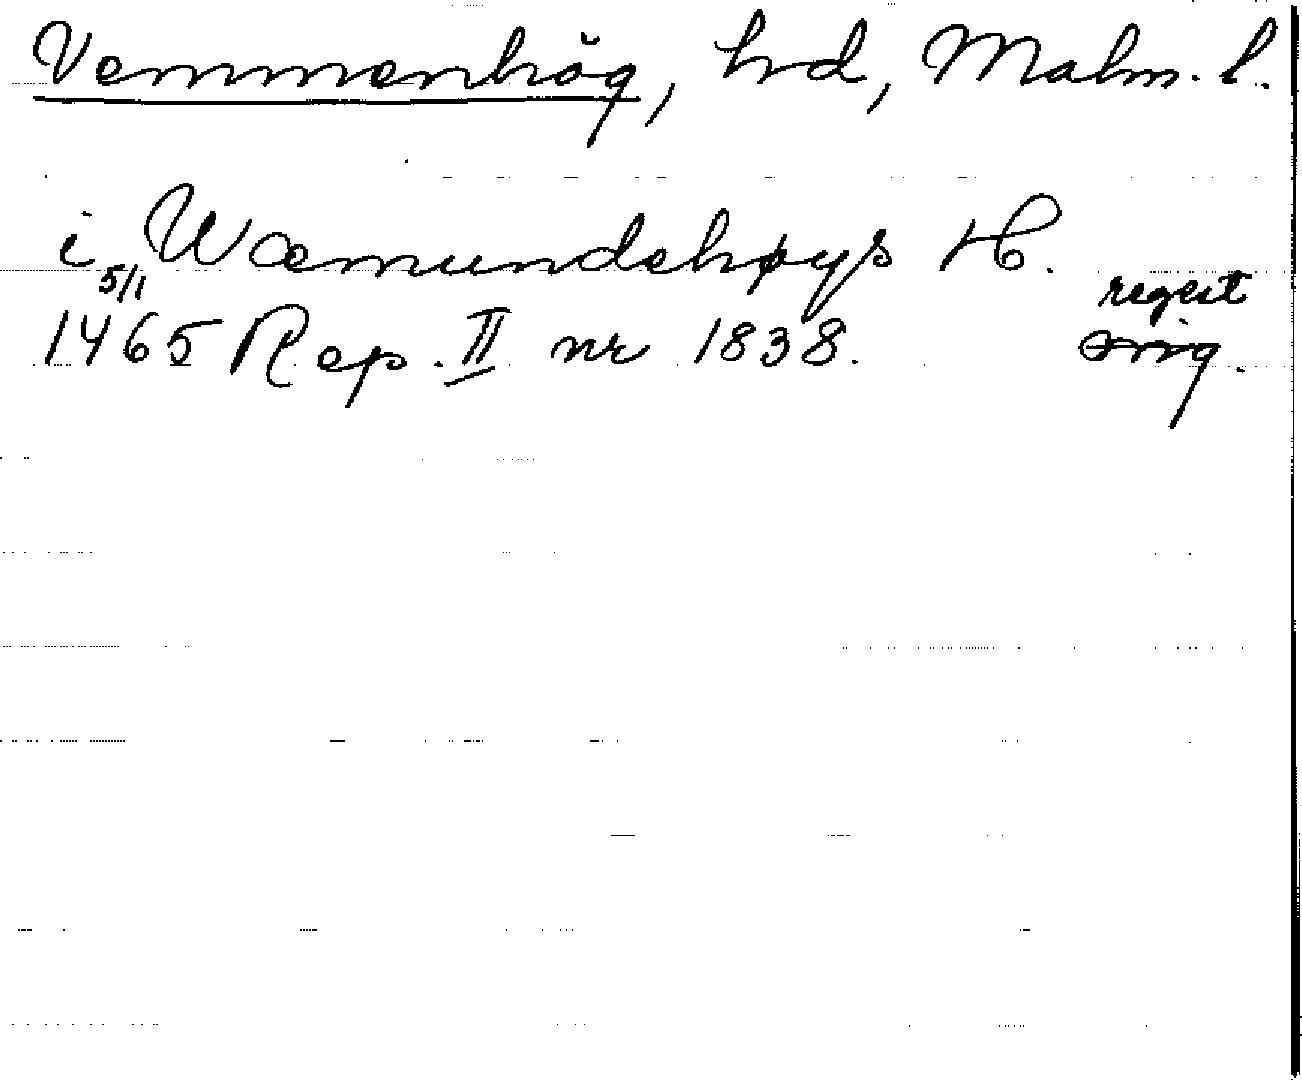 Vemmenhög, hrd, Malm. l.
i Wæmundehøys H.
5/1 regest
1465 Rep. II nr 1838. orig.